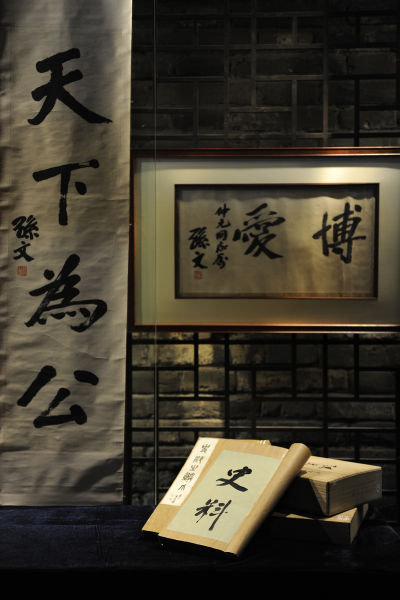 天下為公
孫文
博愛
仲元同志屬
孫文
史料